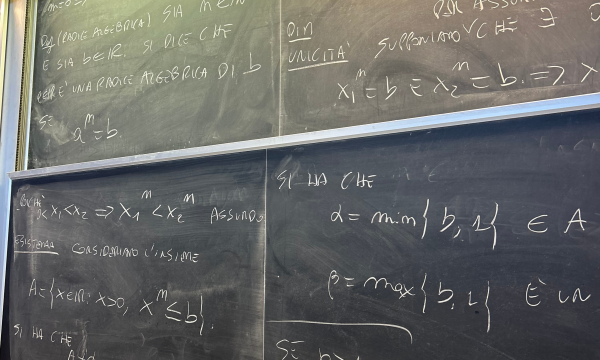 DEF (RADICE ALGEBRICA) SIA m ∈ ℕ
E SIA b∈ℝ. SI DICE CHE
a∈ℝ È UNA RADICE ALGEBRICA DI b
SE
a^m = b.
PER ASSUR
DIM
UNICITÀ SUPPONIAMO CHE ∃
x₁^m = b E x₂^m = b. ⇒ x
0<x₁<x₂ ⇒ x₁^m < x₂^m ASSURDO
ESISTENZA CONSIDERIAMO L'INSIEME
A = {x∈ℝ: x>0, x^m ≤ b}.
SI HA CHE
SI HA CHE
α = min{b, 1} ∈ A
β = max{b, 1} È UN
SE b>1